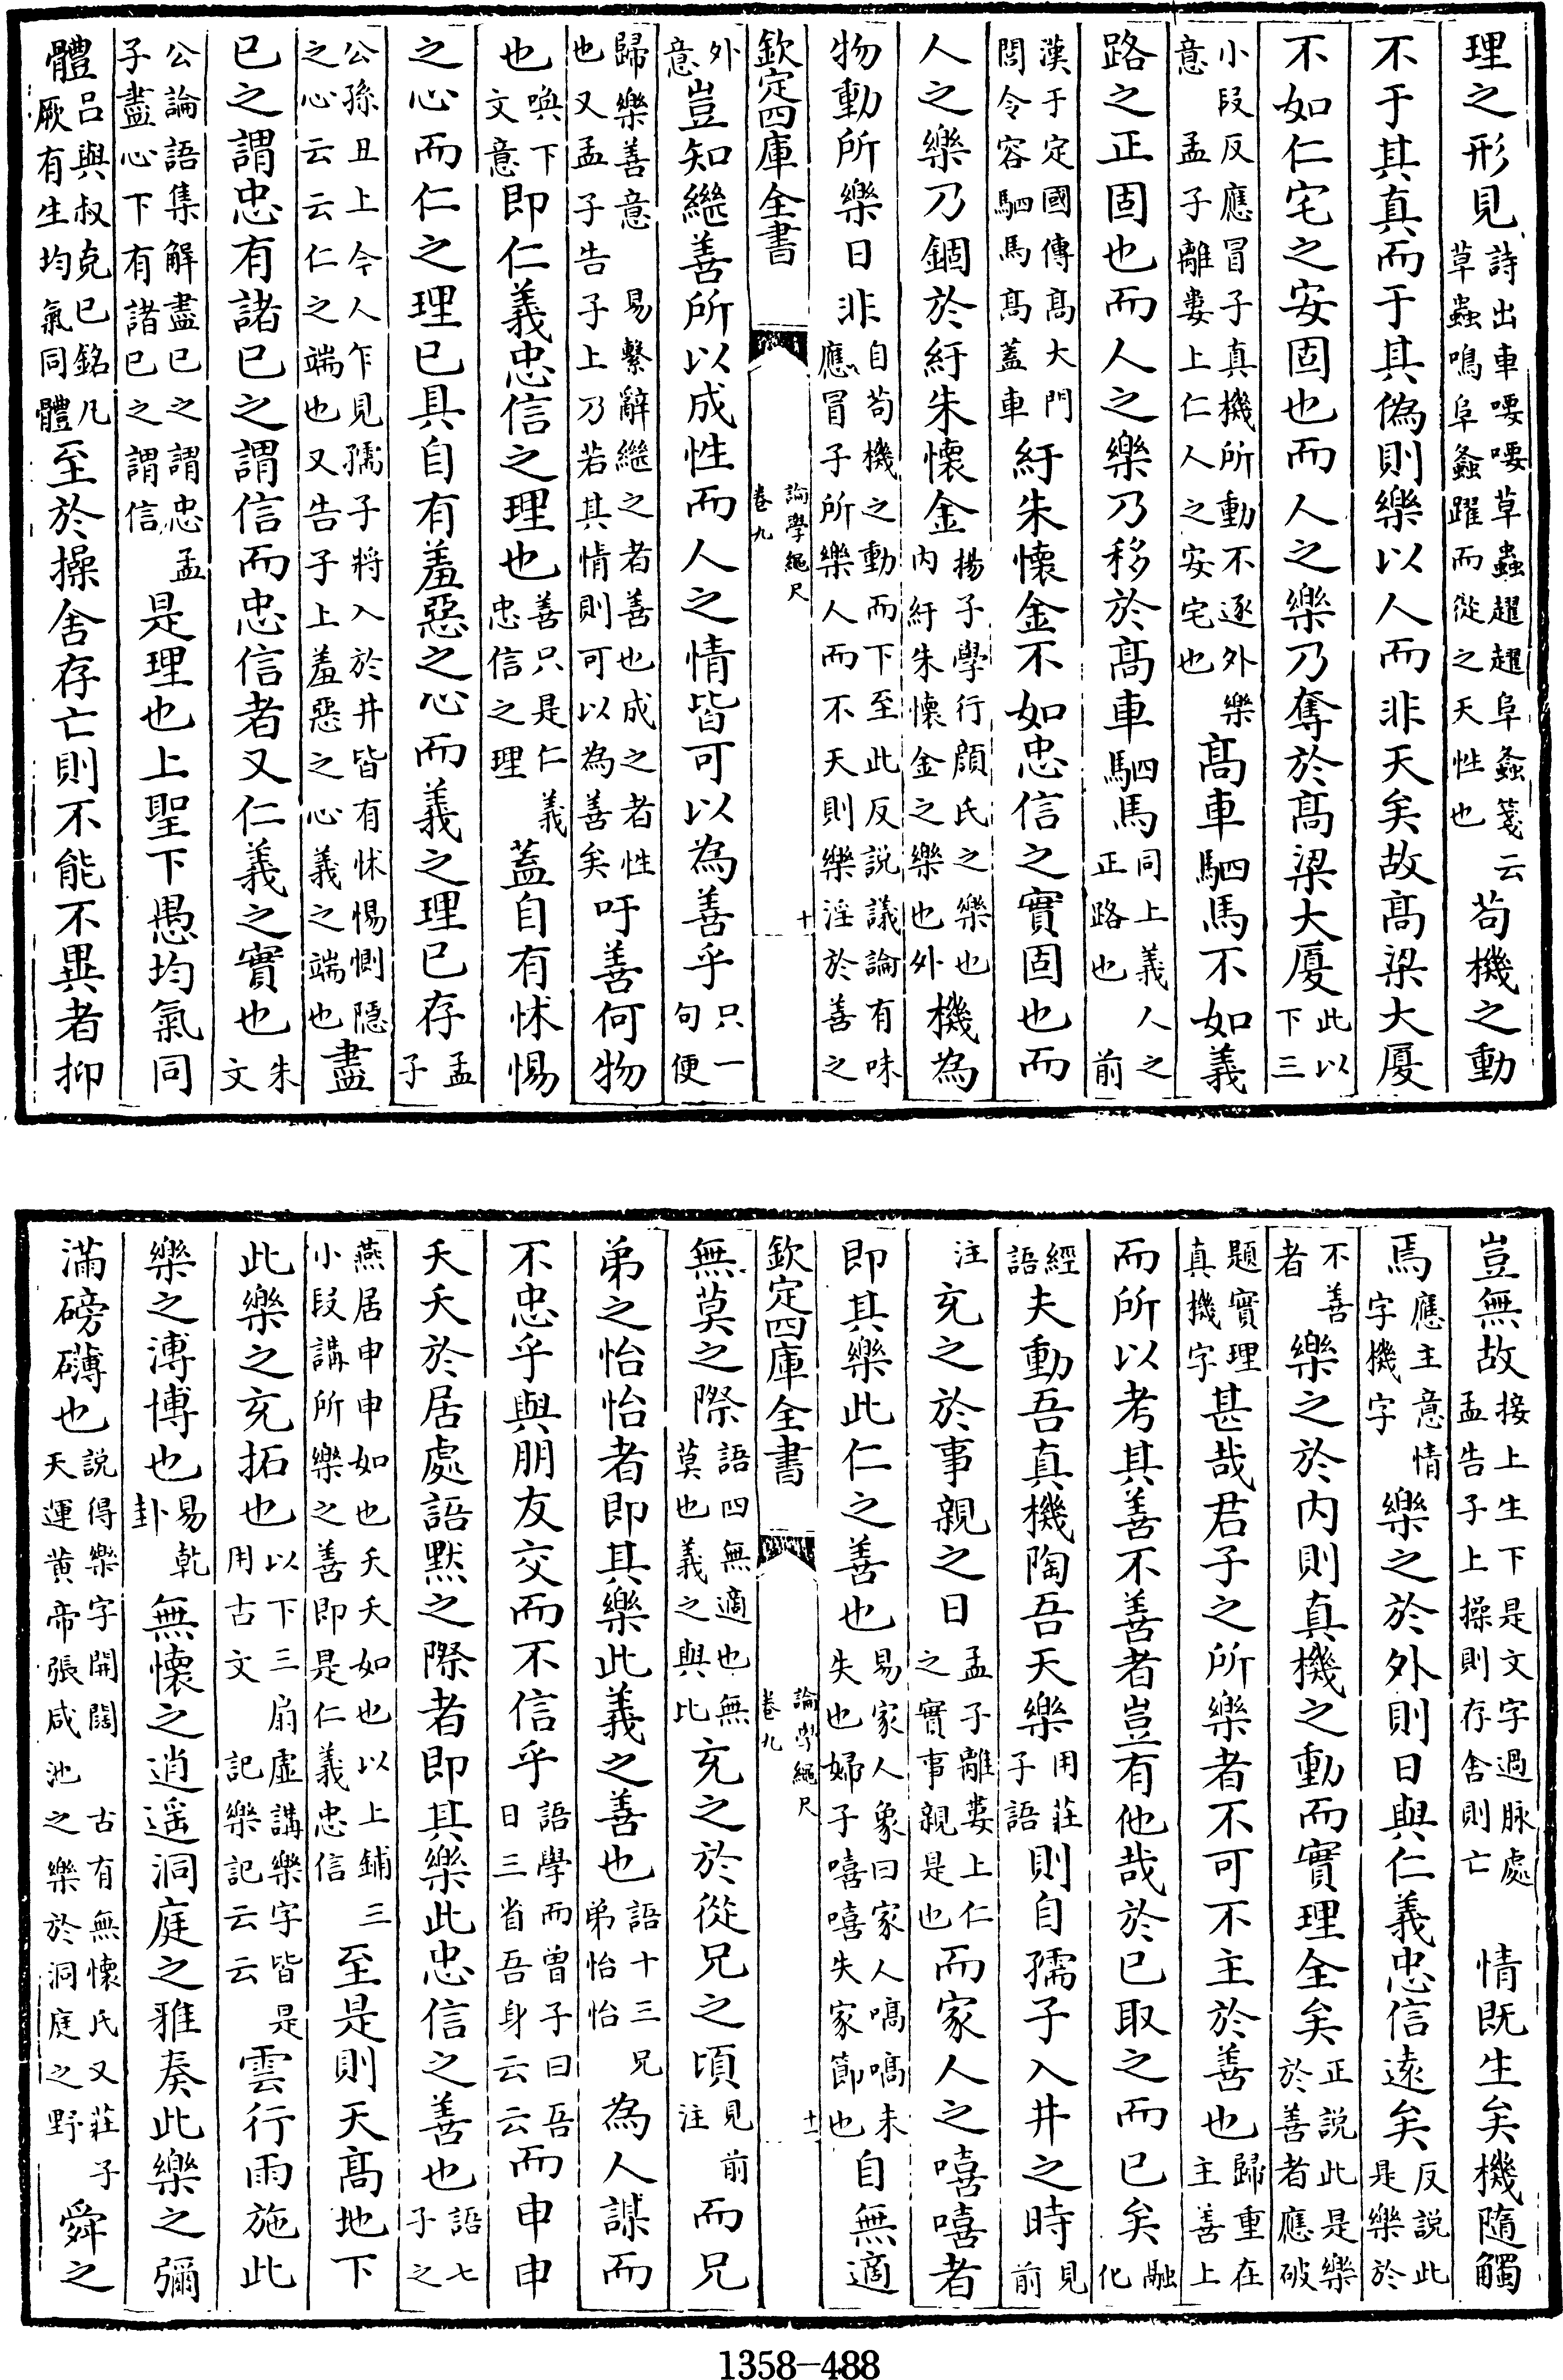 理之形見詩出車喓喓草蟲趯趯阜螽箋云草蟲鳴阜螽躍而從之天性也苟機之動
不于其真而于其偽則樂以人而非天矣故髙梁大厦
不如仁宅之安固也而人之樂乃奪於髙梁大厦此以下三
小段反應冒子真機所動不逐外樂意孟子離婁上仁人之安宅也髙車駟馬不如義
路之正固也而人之樂乃移於髙車駟馬同上義人之正路也前
漢于定國傳髙大門閭令容駟馬髙蓋車紆朱懷金不如忠信之實固也而
人之樂乃錮於紆朱懷金揚子學行顔氏之樂也内紆朱懷金之樂也外機為
物動所樂日非自苟機之動而下至此反説議論有味應冒子所樂人而不天則樂淫於善之
欽定四庫全書
論學繩尺
卷九
十
外意豈知繼善所以成性而人之情皆可以為善乎只一句便
歸樂善意易繫辭繼之者善也成之者性也又孟子告子上乃若其情則可以為善矣吁善何物
也喚下文意即仁義忠信之理也善只是仁義忠信之理蓋自有怵惕
之心而仁之理已具自有羞惡之心而義之理已存孟子
公孫丑上今人乍見孺子將入於井皆有怵惕惻隱之心云云仁之端也又告子上羞惡之心義之端也盡
已之謂忠有諸已之謂信而忠信者又仁義之實也朱文
公論語集解盡已之謂忠孟子盡心下有諸已之謂信是理也上聖下愚均氣同
體吕與叔克已銘凡厥有生均氣同體至於操舍存亡則不能不異者抑
豈無故接上生下是文字過脉處孟告子上操則存舍則亡情既生矣機隨觸
焉應主意情字機字樂之於外則日與仁義忠信遠矣反説此是樂於
不善者樂之於内則真機之動而實理全矣正説此是樂於善者應破
題實理真機字甚哉君子之所樂者不可不主於善也歸重在主善上
而所以考其善不善者豈有他哉於已取之而已矣融化
經語夫動吾真機陶吾天樂用莊子語則自孺子入井之時見前
注充之於事親之日孟子離婁上仁之實事親是也而家人之嘻嘻者
即其樂此仁之善也易家人象曰家人嗃嗃未失也婦子嘻嘻失家節也自無適
欽定四庫全書
論學繩尺
卷九
十一
無莫之際語四無適也無莫也義之與比充之於從兄之頃見前注而兄
弟之怡怡者即其樂此義之善也語十三兄弟怡怡為人謀而
不忠乎與朋友交而不信乎語學而曽子曰吾日三省吾身云云而申申
夭夭於居處語默之際者即其樂此忠信之善也語七子之
燕居申申如也夭夭如也以上鋪三小段講所樂之善即是仁義忠信至是則天髙地下
此樂之充拓也以下三扇虚講樂字皆是用古文記樂記云云雲行雨施此
樂之溥博也易乾卦無懷之逍遥洞庭之雅奏此樂之彌
滿磅礴也説得樂字開闊古有無懷氏又莊子天運黄帝張咸池之樂於洞庭之野舜之
1358-488